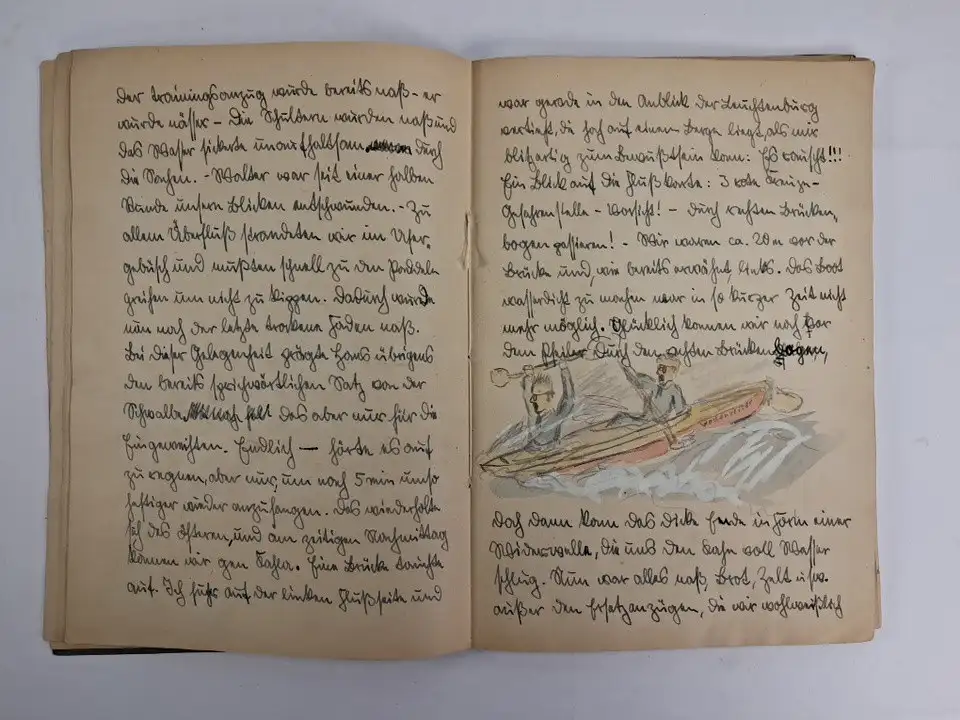 Der Trainingsanzug wurde bereits naß - er
wurde nässer - Die Schultern wurden naß und
das Wasser sickerte unaufhaltsam durch
die Sachen. - Walter war seit einer halben
Stunde unsern Blicken entschwunden. - Zu
allem Überfluß strandeten wir im Ufer-
gebüsch und mußten schnell zu den Paddeln
greifen um nicht zu kippen. Dadurch wurde
nun noch der letzte trockene Faden naß.
Bei dieser Gelegenheit prägte Hans übrigens
den bereits sprichwörtlichen Satz von der
Schwalbe. das aber nur für die
Eingeweihten. Endlich — hörte es auf
zu regnen, aber nur, um nach 5 min umso
heftiger wieder anzufangen. Das wiederholte
sich des öfteren, und am zeitigen Nachmittag
kamen wir gen Kahla. Eine Brücke tauchte
auf. Ich fuhr auf der linken Flußseite und
war gerade in den Anblick der Leuchtenburg
vertieft, die hoch auf einem Berge liegt, als mir
blitzartig zum Bewußtsein kam: Es rauscht!!!
Ein Blick auf die Flußkarte: 3 rote Kreuze -
Gefahrenstelle - Vorsicht! - Durch rechten Brücken-
bogen passieren! - Wir waren ca. 20 m vor der
Brücke und, wie bereits erwähnt, links. Das Boot
wasserdicht zu machen war in so kurzer Zeit nicht
mehr möglich. Glücklich kamen wir noch vor
dem Pfeiler durch den rechten Brückenbogen,
Doch dann kam das dicke Ende in Form einer
Widerwelle, die uns den Kahn voll Wasser
schlug. Nun war alles naß, Brot, Zelt usw.
außer den Ersatzanzügen, die wir wohlweißlich